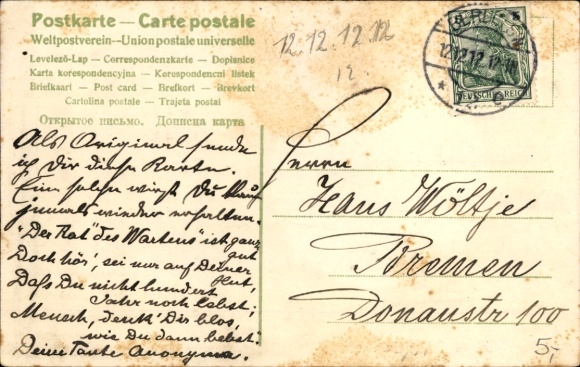 Postkarte — Carte postale
Weltpostverein — Union postale universelle
Levelező-Lap — Correspondenzkarte — Dopisnice
Karta korespondencyjna — Korespondenčni listek
Briefkaart — Post card — Brefkort — Brevkort
Cartolina postale — Trajeta postai
Открытое письмо. Дописна карта
12.12.12.12
12.
12.12.12.12
DEUTSCHES REICH
Als Original sende
ich Dir diese Karte.
Ein solche wirst Du kaum
jemals wieder erhalten.
"Der Rat" des Wartens" ist ganz gut
Doch hör', sei nur auf Deiner Hut,
Daß Du nicht hundert
Jahr noch lebst;
Mensch, denk' Dir blos,
wie Du dann bebst!
Deine Tante Anonyma.
Herrn
Hans Wöltje
Bremen
Donaustr 100
5,-